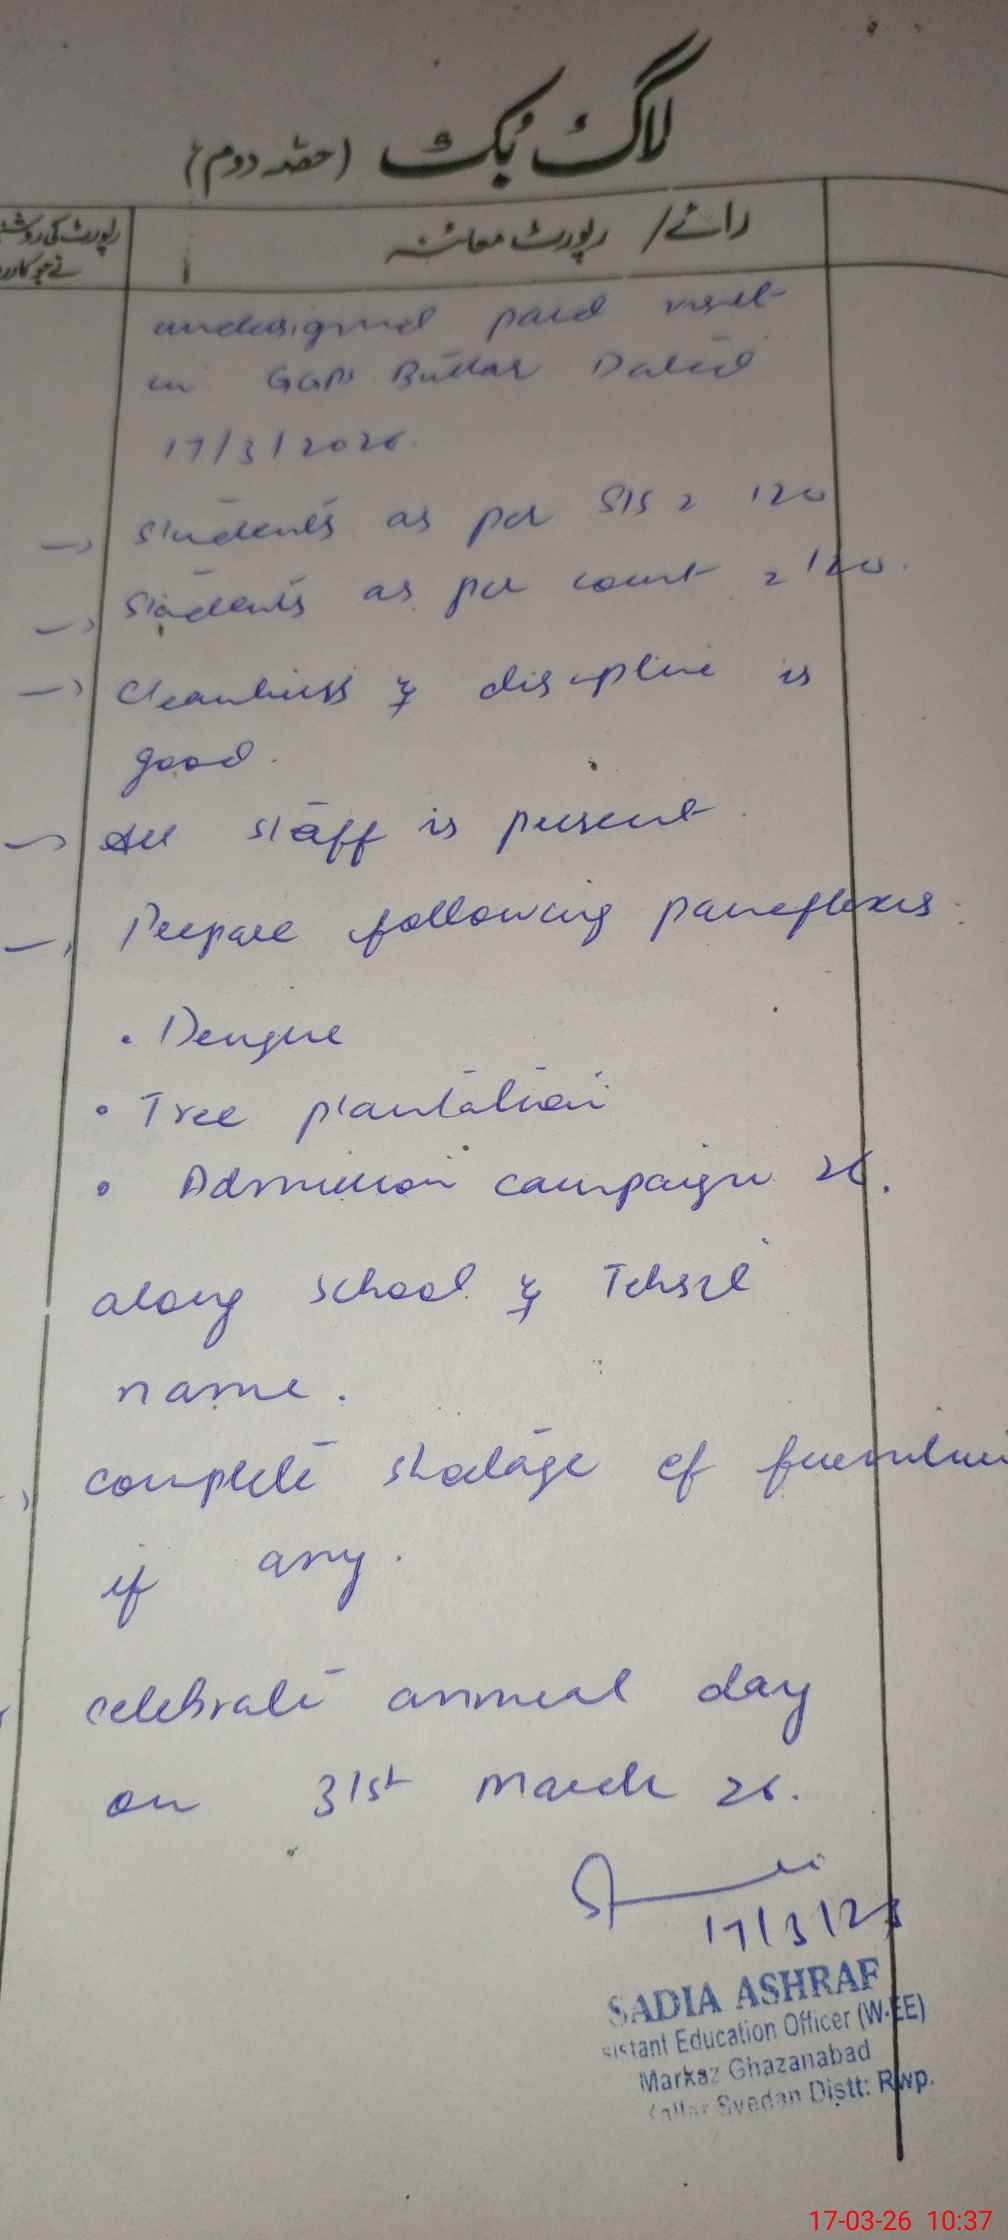 لاگ بُک (حصّہ دوم)
رائے / رپورٹ معائنہ
رپورٹ کی
undersigned paid visit
in GGPS Buttar Dated
17/3/2026.
→ Students as per SIS = 120
→ Students as per count = 120.
→ Cleanliness & discipline is
good.
→ All staff is present.
→ Prepare following paneflexes.
• Dengue
• Tree plantation
• Admission campaign 26.
along school & Tehsil
name.
→ complete shortage of
if any.
celebrate annual day
on 31st March 26.
17/3/
SADIA ASHRAF
sistant Education Officer (W-EE)
Markaz Ghazanabad
Kallar Syedan Distt: Rwp.
17-03-26 10:37